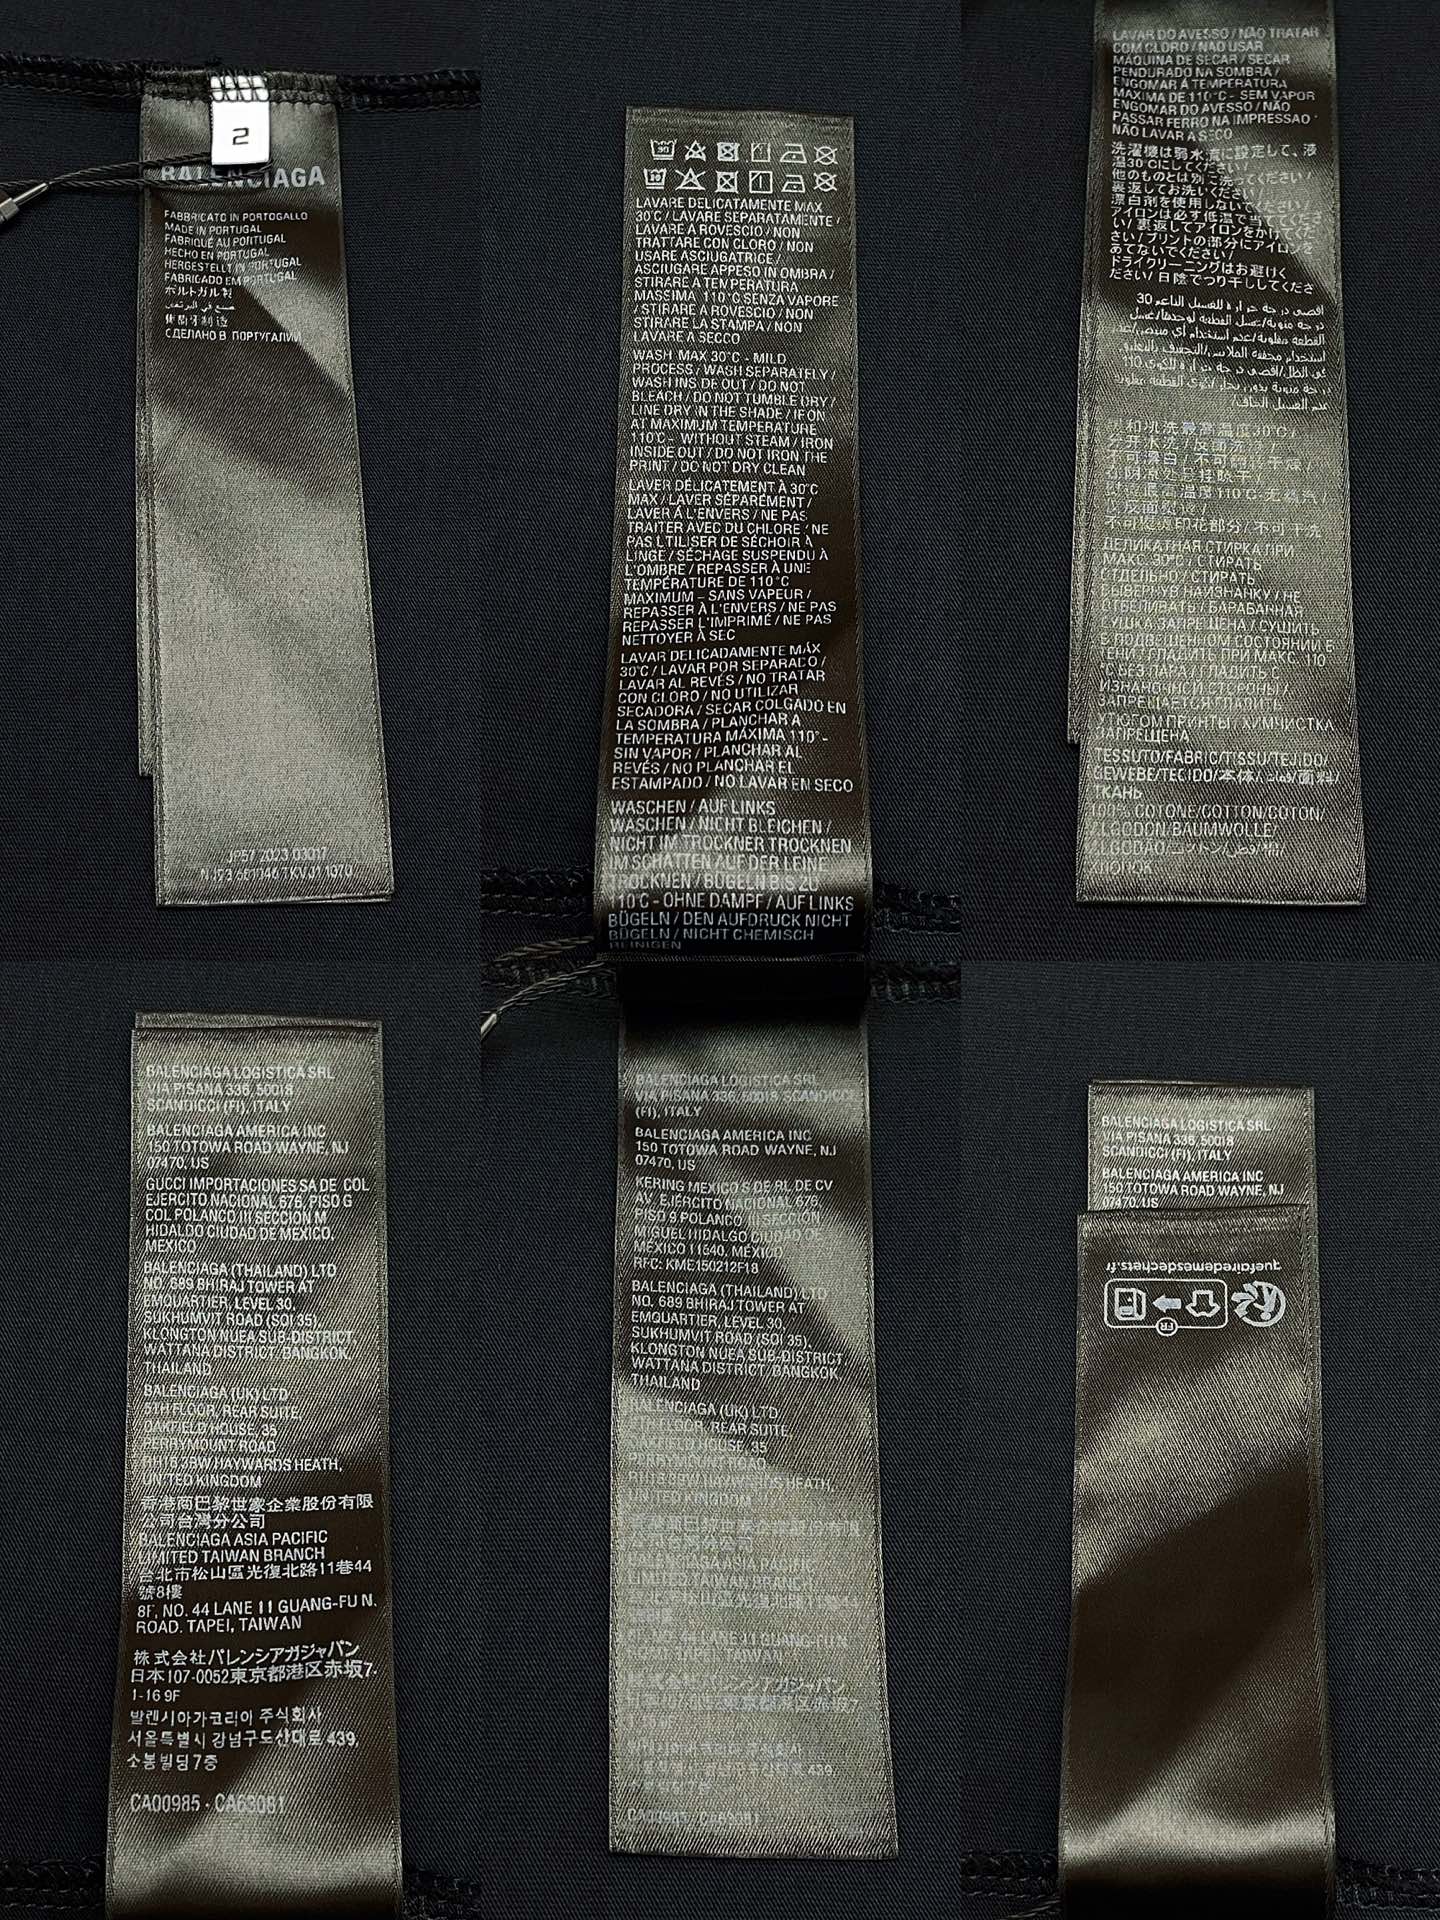 2
BALENCIAGA
FABBRICATO IN PORTOGALLO
MADE IN PORTUGAL
FABRIQUÉ AU PORTUGAL
HECHO EN PORTUGAL
HERGESTELLT IN PORTUGAL
FABRICADO EM PORTUGAL
ポルトガル製
صنع في البرتغال
葡萄牙制造
СДЕЛАНО В ПОРТУГАЛИИ
JP57 2023 03017
LAVARE DELICATAMENTE MAX
30°C / LAVARE SEPARATAMENTE /
LAVARE A ROVESCIO / NON
TRATTARE CON CLORO / NON
USARE ASCIUGATRICE /
ASCIUGARE APPESO IN OMBRA /
STIRARE A TEMPERATURA
MASSIMA 110°C SENZA VAPORE
/ STIRARE A ROVESCIO / NON
STIRARE LA STAMPA / NON
LAVARE A SECCO
WASH MAX 30°C - MILD
PROCESS / WASH SEPARATELY /
WASH INSIDE OUT / DO NOT
BLEACH / DO NOT TUMBLE DRY /
LINE DRY IN THE SHADE / IRON
AT MAXIMUM TEMPERATURE
110°C - WITHOUT STEAM / IRON
INSIDE OUT / DO NOT IRON THE
PRINT / DO NOT DRY CLEAN
LAVER DÉLICATEMENT À 30°C
MAX / LAVER SÉPARÉMENT /
LAVER À L'ENVERS / NE PAS
TRAITER AVEC DU CHLORE / NE
PAS UTILISER DE SÉCHOIR À
LINGE / SÉCHAGE SUSPENDU À
L'OMBRE / REPASSER À UNE
TEMPÉRATURE DE 110°C
MAXIMUM - SANS VAPEUR /
REPASSER À L'ENVERS / NE PAS
REPASSER L'IMPRIMÉ / NE PAS
NETTOYER À SEC
LAVAR DELICADAMENTE MÁX
30°C / LAVAR POR SEPARADO /
LAVAR AL REVÉS / NO TRATAR
CON CLORO / NO UTILIZAR
SECADORA / SECAR COLGADO EN
LA SOMBRA / PLANCHAR A
TEMPERATURA MÁXIMA 110° -
SIN VAPOR / PLANCHAR AL
REVÉS / NO PLANCHAR EL
ESTAMPADO / NO LAVAR EN SECO
WASCHEN / AUF LINKS
WASCHEN / NICHT BLEICHEN /
NICHT IM TROCKNER TROCKNEN
IM SCHATTEN AUF DER LEINE
TROCKNEN / BÜGELN BIS ZU
110°C - OHNE DAMPF / AUF LINKS
BÜGELN / DEN AUFDRUCK NICHT
BÜGELN / NICHT CHEMISCH
REINIGEN
LAVAR DO AVESSO / NÃO TRATAR
COM CLORO / NÃO USAR
MÁQUINA DE SECAR / SECAR
PENDURADO NA SOMBRA /
ENGOMAR À TEMPERATURA
MÁXIMA DE 110°C - SEM VAPOR
ENGOMAR DO AVESSO / NÃO
PASSAR FERRO NA IMPRESSÃO
NÃO LAVAR A SECO
洗濯機は弱水流に設定して、液
温30°Cにしてください/
他のものとは別に洗ってください/
裏返してお洗いください/
漂白剤を使用しないでください/
アイロンは必ず低温で当ててくださ
い/ 裏返してアイロンをかけてくだ
さい/ プリントの部分にアイロンを
あてないでください/
ドライクリーニングはお避けく
ださい/ 日陰でつり干ししてくださ
اقصى درجة حرارة للغسيل الناعم 30
درجة مئوية/غسل القطعة لوحدها/غسل
القطعة مقلوبة/عدم استخدام أي مبيض/عدم
استخدام مجففة الملابس/التجفيف بالتعليق
في الظل/اقصى درجة حرارة للكوي 110
درجة مئوية بدون بخار/كوي القطعة مقلوبة
عدم الغسيل الجاف/
柔和洗涤最高温度30°C /
分开水洗 / 反面洗涤 /
不可漂白 / 不可翻转干燥 /
在阴凉处悬挂晾干 /
熨烫最高温度110°C-无蒸汽 /
仅反面熨烫 /
不可熨烫印花部分 / 不可干洗
ДЕЛИКАТНАЯ СТИРКА ПРИ
МАКС. 30°C / СТИРАТЬ
ОТДЕЛЬНО / СТИРАТЬ
ВЫВЕРНУВ НАИЗНАНКУ / НЕ
ОТБЕЛИВАТЬ / БАРАБАННАЯ
СУШКА ЗАПРЕЩЕНА / СУШИТЬ
В ПОДВЕШЕННОМ СОСТОЯНИИ В
ТЕНИ / ГЛАДИТЬ ПРИ МАКС. 110
°C БЕЗ ПАРА / ГЛАДИТЬ С
ИЗНАНОЧНОЙ СТОРОНЫ /
ЗАПРЕЩАЕТСЯ ГЛАДИТЬ
УТЮГОМ ПРИНТЫ / ХИМЧИСТКА
ЗАПРЕЩЕНА
TESSUTO/FABRIC/TISSU/TEJIDO/
GEWEBE/TECIDO/本体/قماش/面料/
ТКАНЬ
100% COTONE/COTTON/COTON/
ALGODON/BAUMWOLLE/
ALGODÃO/コットン/قطن/棉/
ХЛОПОК
BALENCIAGA LOGISTICA SRL
VIA PISANA 336, 50018
SCANDICCI (FI), ITALY
BALENCIAGA AMERICA INC
150 TOTOWA ROAD WAYNE, NJ
07470, US
GUCCI IMPORTACIONES SA DE COL
EJERCITO NACIONAL 676, PISO G
COL POLANCO III SECCION M
HIDALDO CIUDAD DE MEXICO,
MEXICO
BALENCIAGA (THAILAND) LTD
NO. 689 BHIRAJ TOWER AT
EMQUARTIER, LEVEL 30,
SUKHUMVIT ROAD (SOI 35),
KLONGTON NUEA SUB-DISTRICT,
WATTANA DISTRICT, BANGKOK,
THAILAND
BALENCIAGA (UK) LTD
5TH FLOOR, REAR SUITE,
OAKFIELD HOUSE, 35
PERRYMOUNT ROAD
RH16 3BW HAYWARDS HEATH,
UNITED KINGDOM
香港商巴黎世家企業股份有限
公司台灣分公司
BALENCIAGA ASIA PACIFIC
LIMITED TAIWAN BRANCH
台北市松山區光復北路11巷44
號8樓
8F, NO. 44 LANE 11 GUANG-FU N.
ROAD. TAPEI, TAIWAN
株式会社バレンシアガジャパン
日本107-0052東京都港区赤坂7-
1-16 9F
발렌시아가코리아 주식회사
서울특별시 강남구도산대로 439,
소봉빌딩7층
CA00985 · CA63081
BALENCIAGA LOGISTICA SRL
VIA PISANA 336, 50018 SCANDICCI
(FI), ITALY
BALENCIAGA AMERICA INC
150 TOTOWA ROAD WAYNE, NJ
07470, US
KERING MEXICO S DE RL DE CV
AV. EJÉRCITO NACIONAL 676,
PISO 9 POLANCO III SECCIÓN
MIGUEL HIDALGO CIUDAD DE
MÉXICO 11540, MÉXICO
RFC: KME150212F18
BALENCIAGA (THAILAND) LTD
NO. 689 BHIRAJ TOWER AT
EMQUARTIER, LEVEL 30,
SUKHUMVIT ROAD (SOI 35),
KLONGTON NUEA SUB-DISTRICT,
WATTANA DISTRICT, BANGKOK,
THAILAND
BALENCIAGA (UK) LTD
5TH FLOOR, REAR SUITE,
OAKFIELD HOUSE, 35
PERRYMOUNT ROAD
RH16 3BW HAYWARDS HEATH,
UNITED KINGDOM
BALENCIAGA ASIA PACIFIC
LIMITED TAIWAN BRANCH
NO. 44 LANE 11 GUANG-FU N.
ROAD. TAPEI, TAIWAN
株式会社バレンシアガジャパン
CA00985 · CA63081
BALENCIAGA LOGISTICA SRL
VIA PISANA 336, 50018
SCANDICCI (FI), ITALY
BALENCIAGA AMERICA INC
150 TOTOWA ROAD WAYNE, NJ
07470, US
FR
quefairedemesdechets.fr